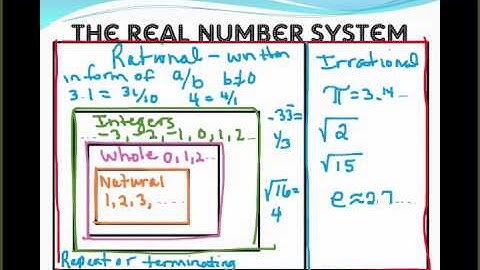 THE REAL NUMBER SYSTEM
Rational - written
in form of a/b b≠0
3.1 = 31/10 4 = 4/1
Integers
-3, -2, -1, 0, 1, 2...
Whole 0, 1, 2...
Natural
1, 2, 3, ...
-.33 =
1/3
√16 =
4
Repeat or terminating
Irrational
π = 3.14...
√2
√15
e ≈ 2.7....